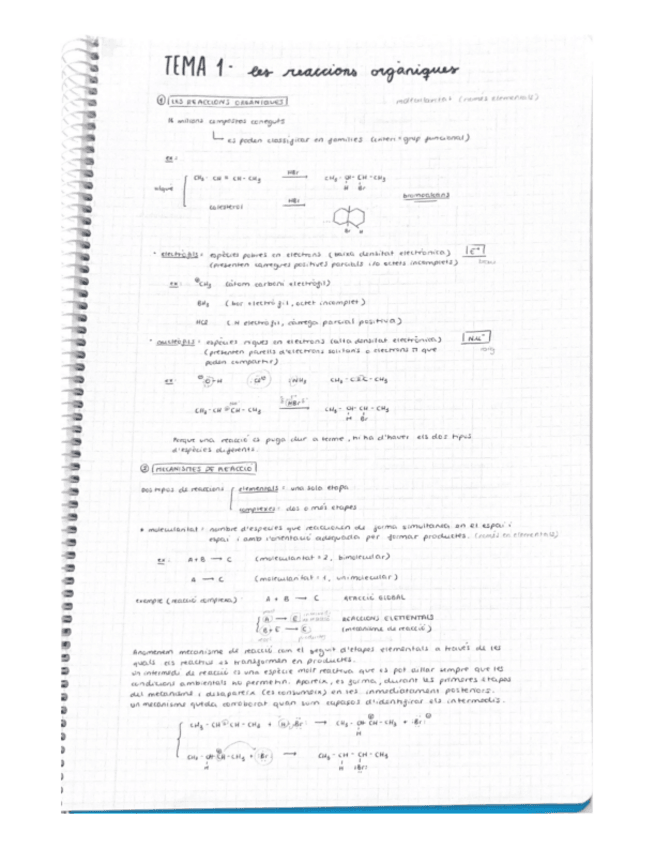 TEMA 1. les reaccions orgàniques
① LES REACCIONS ORGÀNIQUES
molecularitat (només elementals)
16 milions compostos coneguts
es poden classificar en famílies (criteri = grup funcional)
ex:
CH₃ - CH = CH - CH₃ HBr CH₃ - CH - CH - CH₃
H Br
alquè
colesterol HBr
bromoalcans
Br H
· electròfils: espècies pobres en electrons (baixa densitat electrònica) E⁺
(presenten càrregues positives parcials i/o octets incomplets)
ex: ⊕CH₃ (àtom carboni electròfil)
BH₃ (bor electròfil, octet incomplet)
HCl (H electròfil, càrrega parcial positiva)
· nucleòfils: espècies riques en electrons (alta densitat electrònica) Nu⁻
(presenten parells d'electrons solitaris o electrons π que
poden compartir)
ex: NH₃ CH₃ - C≡C - CH₃
CH₃ - CH = CH - CH₃ HBr CH₃ - CH - CH - CH₃
H Br
Perquè una reacció es pugui dur a terme, hi ha d'haver els dos tipus
d'espècies diferents.
② MECANISMES DE REACCIÓ
Dos tipus de reaccions
elementals: una sola etapa
complexes: dos o més etapes
* molecularitat: nombre d'espècies que reaccionen de forma simultània en el espai i
espai i amb l'orientació adequada per formar productes. (només en elementals)
ex: A + B → C (molecularitat = 2, bimolecular)
A → C (molecularitat = 1, unimolecular)
exemple (reacció complexa): A + B → C REACCIÓ GLOBAL
A → E REACCIONS ELEMENTALS
B + E → C (mecanisme de reacció)
Anomenem mecanisme de reacció com el seguit d'etapes elementals a través de les
quals els reactius es transformen en productes.
Un intermedi de reacció és una espècie molt reactiva que es pot aïllar sempre que les
condicions ambientals ho permetin. Apareix, es forma, durant les primeres etapes
del mecanisme i desapareix (es consumeix) en les immediatament posteriors.
Un mecanisme queda corroborat quan som capaços d'identificar els intermedis.
CH₃ - CH = CH - CH₃ + H - Br: → CH₃ - CH - CH - CH₃ + :Br:
H
CH₃ - CH - CH - CH₃ + :Br: → CH₃ - CH - CH - CH₃
H H :Br: